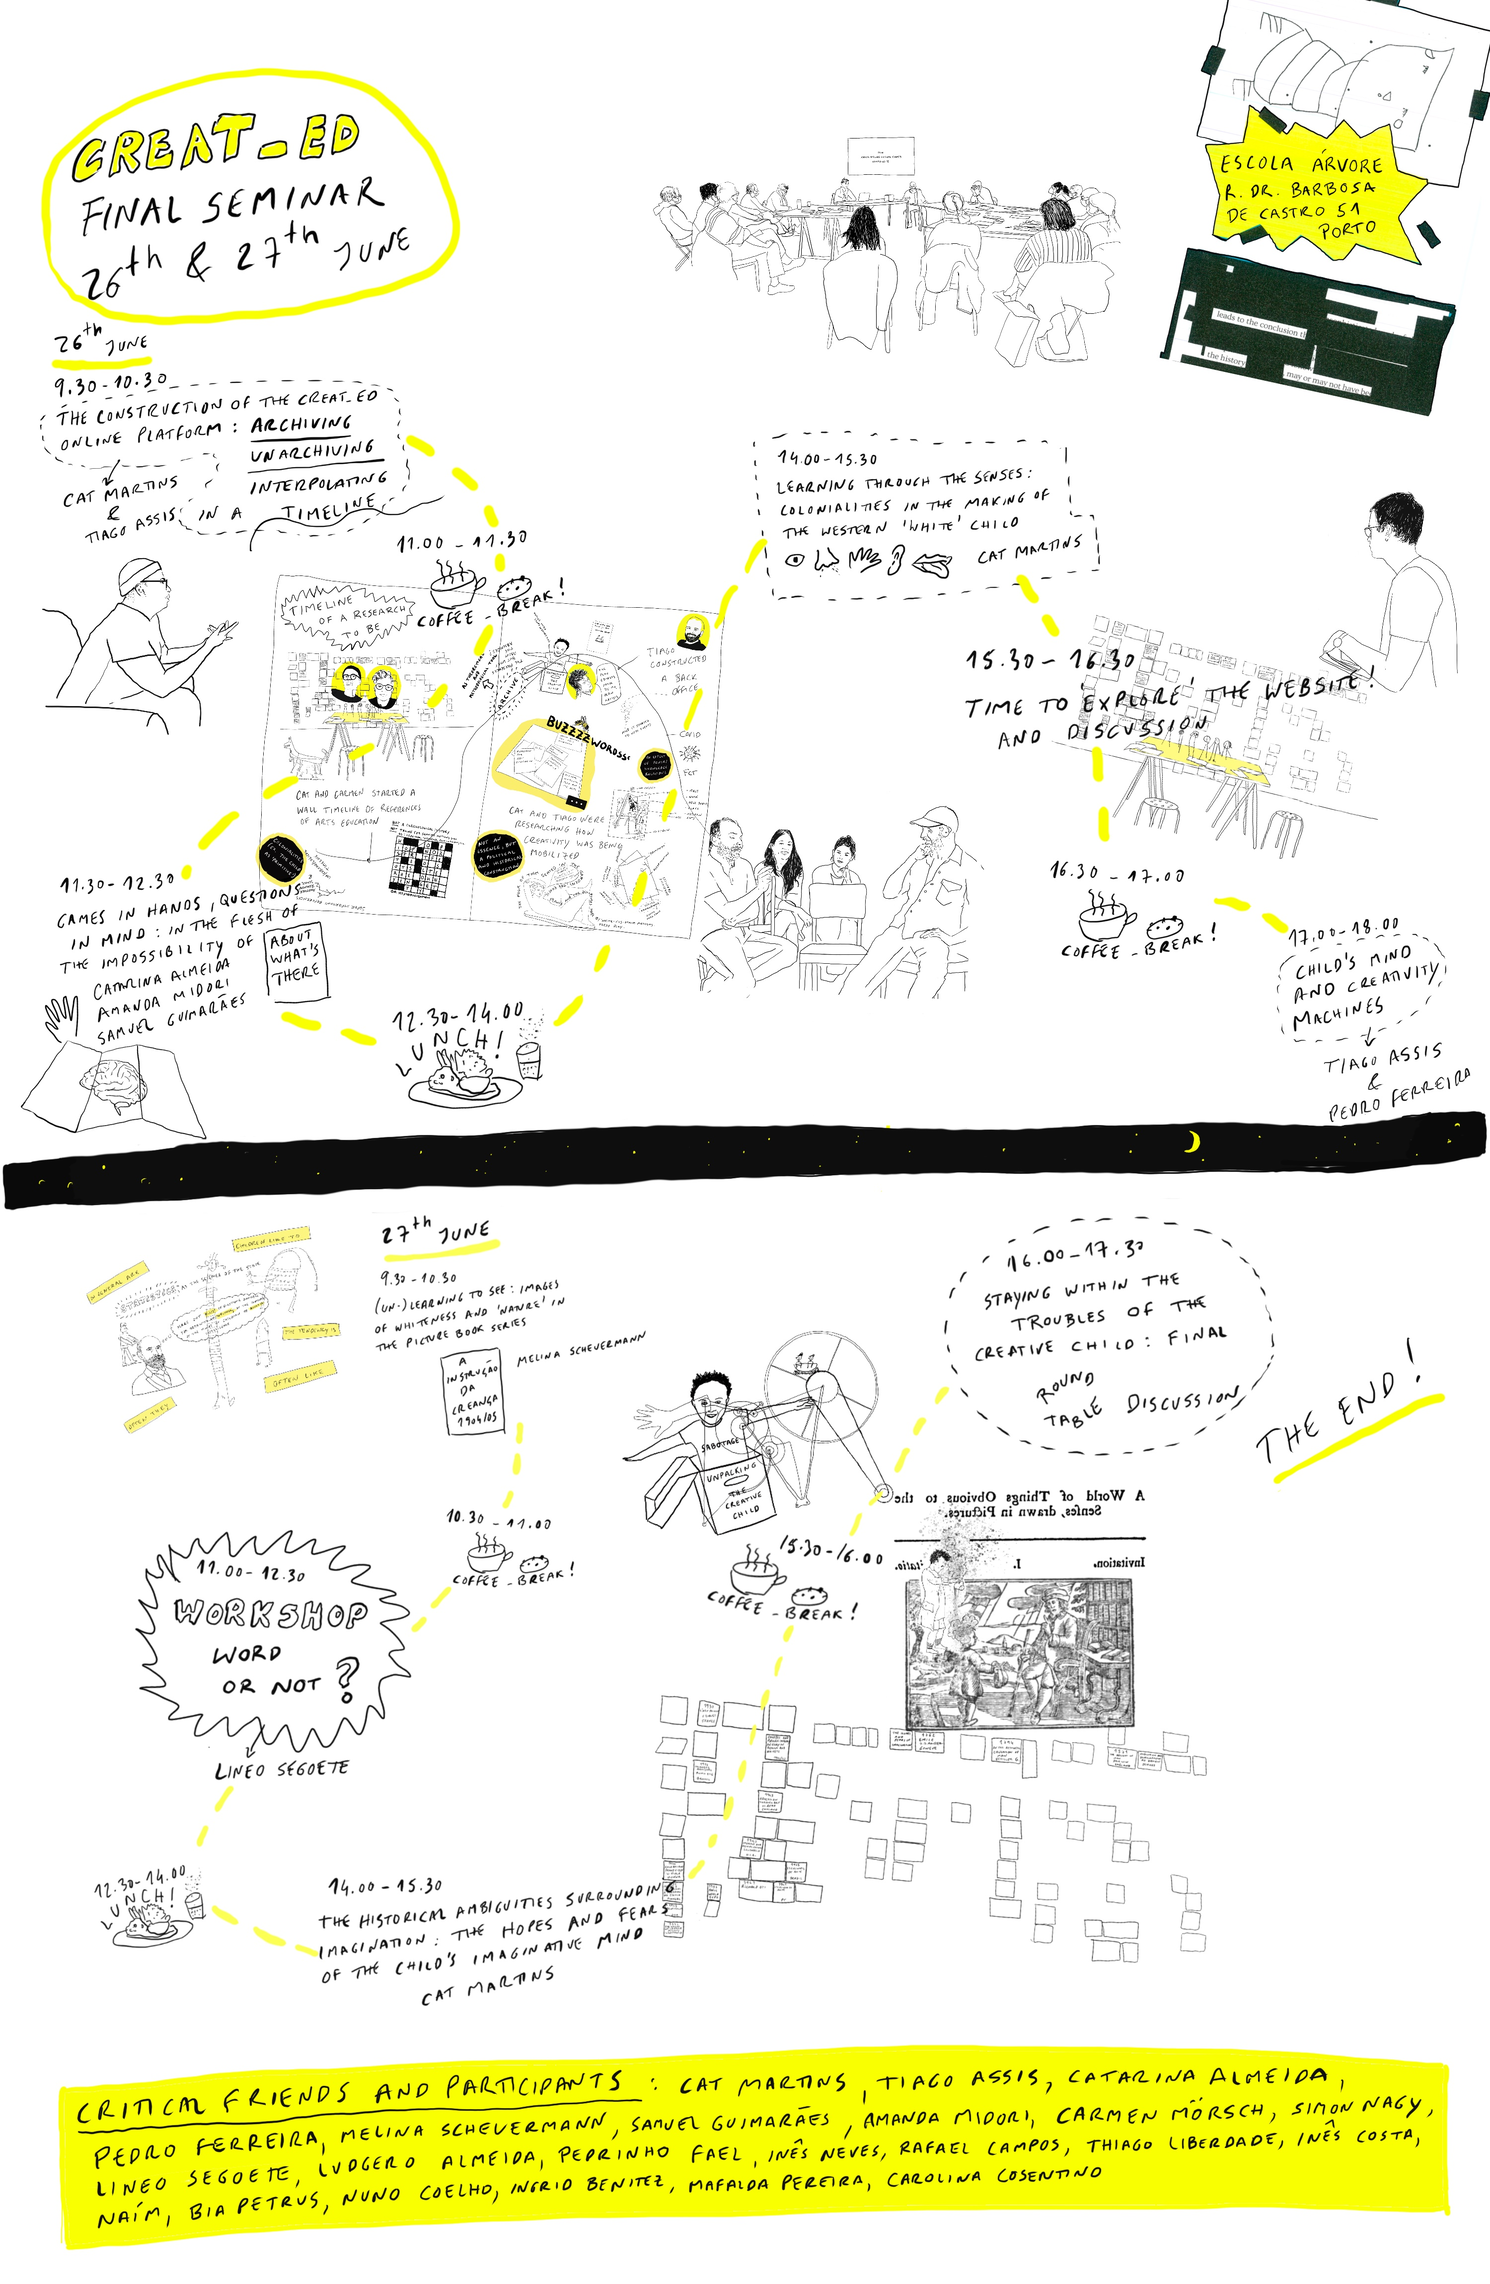 CREAT_ED
FINAL SEMINAR
26th & 27th JUNE
ESCOLA ÁRVORE
R. DR. BARBOSA
DE CASTRO 51
PORTO
leads to the conclusion th
the history
may or may not have be
26th JUNE
9.30-10.30
THE CONSTRUCTION OF THE CREAT_ED
ONLINE PLATFORM: ARCHIVING
UNARCHIVING
INTERPOLATING
IN A TIMELINE
CAT MARTINS
&
TIAGO ASSIS
11.00-11.30
COFFEE-BREAK!
TIMELINE
OF A RESEARCH
TO BE
ARCHIVE
TIAGO
CONSTRUCTED
A BACK
OFFICE
BUZZZZWORDSS!
COVID
FCT
CAT AND CARMEN STARTED A
WALL TIMELINE OF REFERENCES
OF ARTS EDUCATION
CAT AND TIAGO WERE
RESEARCHING HOW
CREATIVITY WAS BEING
MOBILIZED
NOT AN
ESSENCE, BUT
A POLITICAL
AND HISTORICAL
CONSTRUCTION
11.30-12.30
GAMES IN HANDS, QUESTIONS
IN MIND: IN THE FLESH OF
THE IMPOSSIBILITY OF
ABOUT
WHAT'S
THERE
CATARINA ALMEIDA
AMANDA MIDORI
SAMUEL GUIMARÃES
12.30-14.00
LUNCH!
14.00-15.30
LEARNING THROUGH THE SENSES:
COLONIALITIES IN THE MAKING OF
THE WESTERN 'WHITE' CHILD
CAT MARTINS
15.30-16.30
TIME TO 'EXPLORE' THE WEBSITE!
AND DISCUSSION
16.30-17.00
COFFEE-BREAK!
17.00-18.00
CHILD'S MIND
AND CREATIVITY
MACHINES
TIAGO ASSIS
&
PEDRO FERREIRA
27th JUNE
9.30-10.30
(UN-)LEARNING TO SEE: IMAGES
OF WHITENESS AND 'NATURE' IN
THE PICTURE BOOK SERIES
A
INSTRUÇÃO
DA
CREANÇA
1904/05
MELINA SCHEUERMANN
IN GENERAL ARE
CHILDREN LIKE TO
THE TENDENCY IS
OFTEN LIKE
OFTEN THEY
10.30-11.00
COFFEE-BREAK!
11.00-12.30
WORKSHOP
WORD
OR NOT?
LINEO SEGOETE
12.30-14.00
LUNCH!
14.00-15.30
THE HISTORICAL AMBIGUITIES SURROUNDING
IMAGINATION: THE HOPES AND FEARS
OF THE CHILD'S IMAGINATIVE MIND
CAT MARTINS
SABOTAGE
UNPACKING
THE
CREATIVE
CHILD
15.30-16.00
COFFEE-BREAK!
A World of Things Obvious to the
Senses, drawn in Pictures.
Invitation.
I.
16.00-17.30
STAYING WITHIN THE
TROUBLES OF THE
CREATIVE CHILD: FINAL
ROUND
TABLE DISCUSSION
THE END!
CRITICAL FRIENDS AND PARTICIPANTS: CAT MARTINS, TIAGO ASSIS, CATARINA ALMEIDA,
PEDRO FERREIRA, MELINA SCHEUERMANN, SAMUEL GUIMARÃES, AMANDA MIDORI, CARMEN MÖRSCH, SIMON NAGY,
LINEO SEGOETE, LUDGERO ALMEIDA, PEDRINHO FAEL, INÊS NEVES, RAFAEL CAMPOS, THIAGO LIBERDADE, INÊS COSTA,
NAÍM, BIA PETRUS, NUNO COELHO, INGRID BENITEZ, MAFALDA PEREIRA, CAROLINA COSENTINO